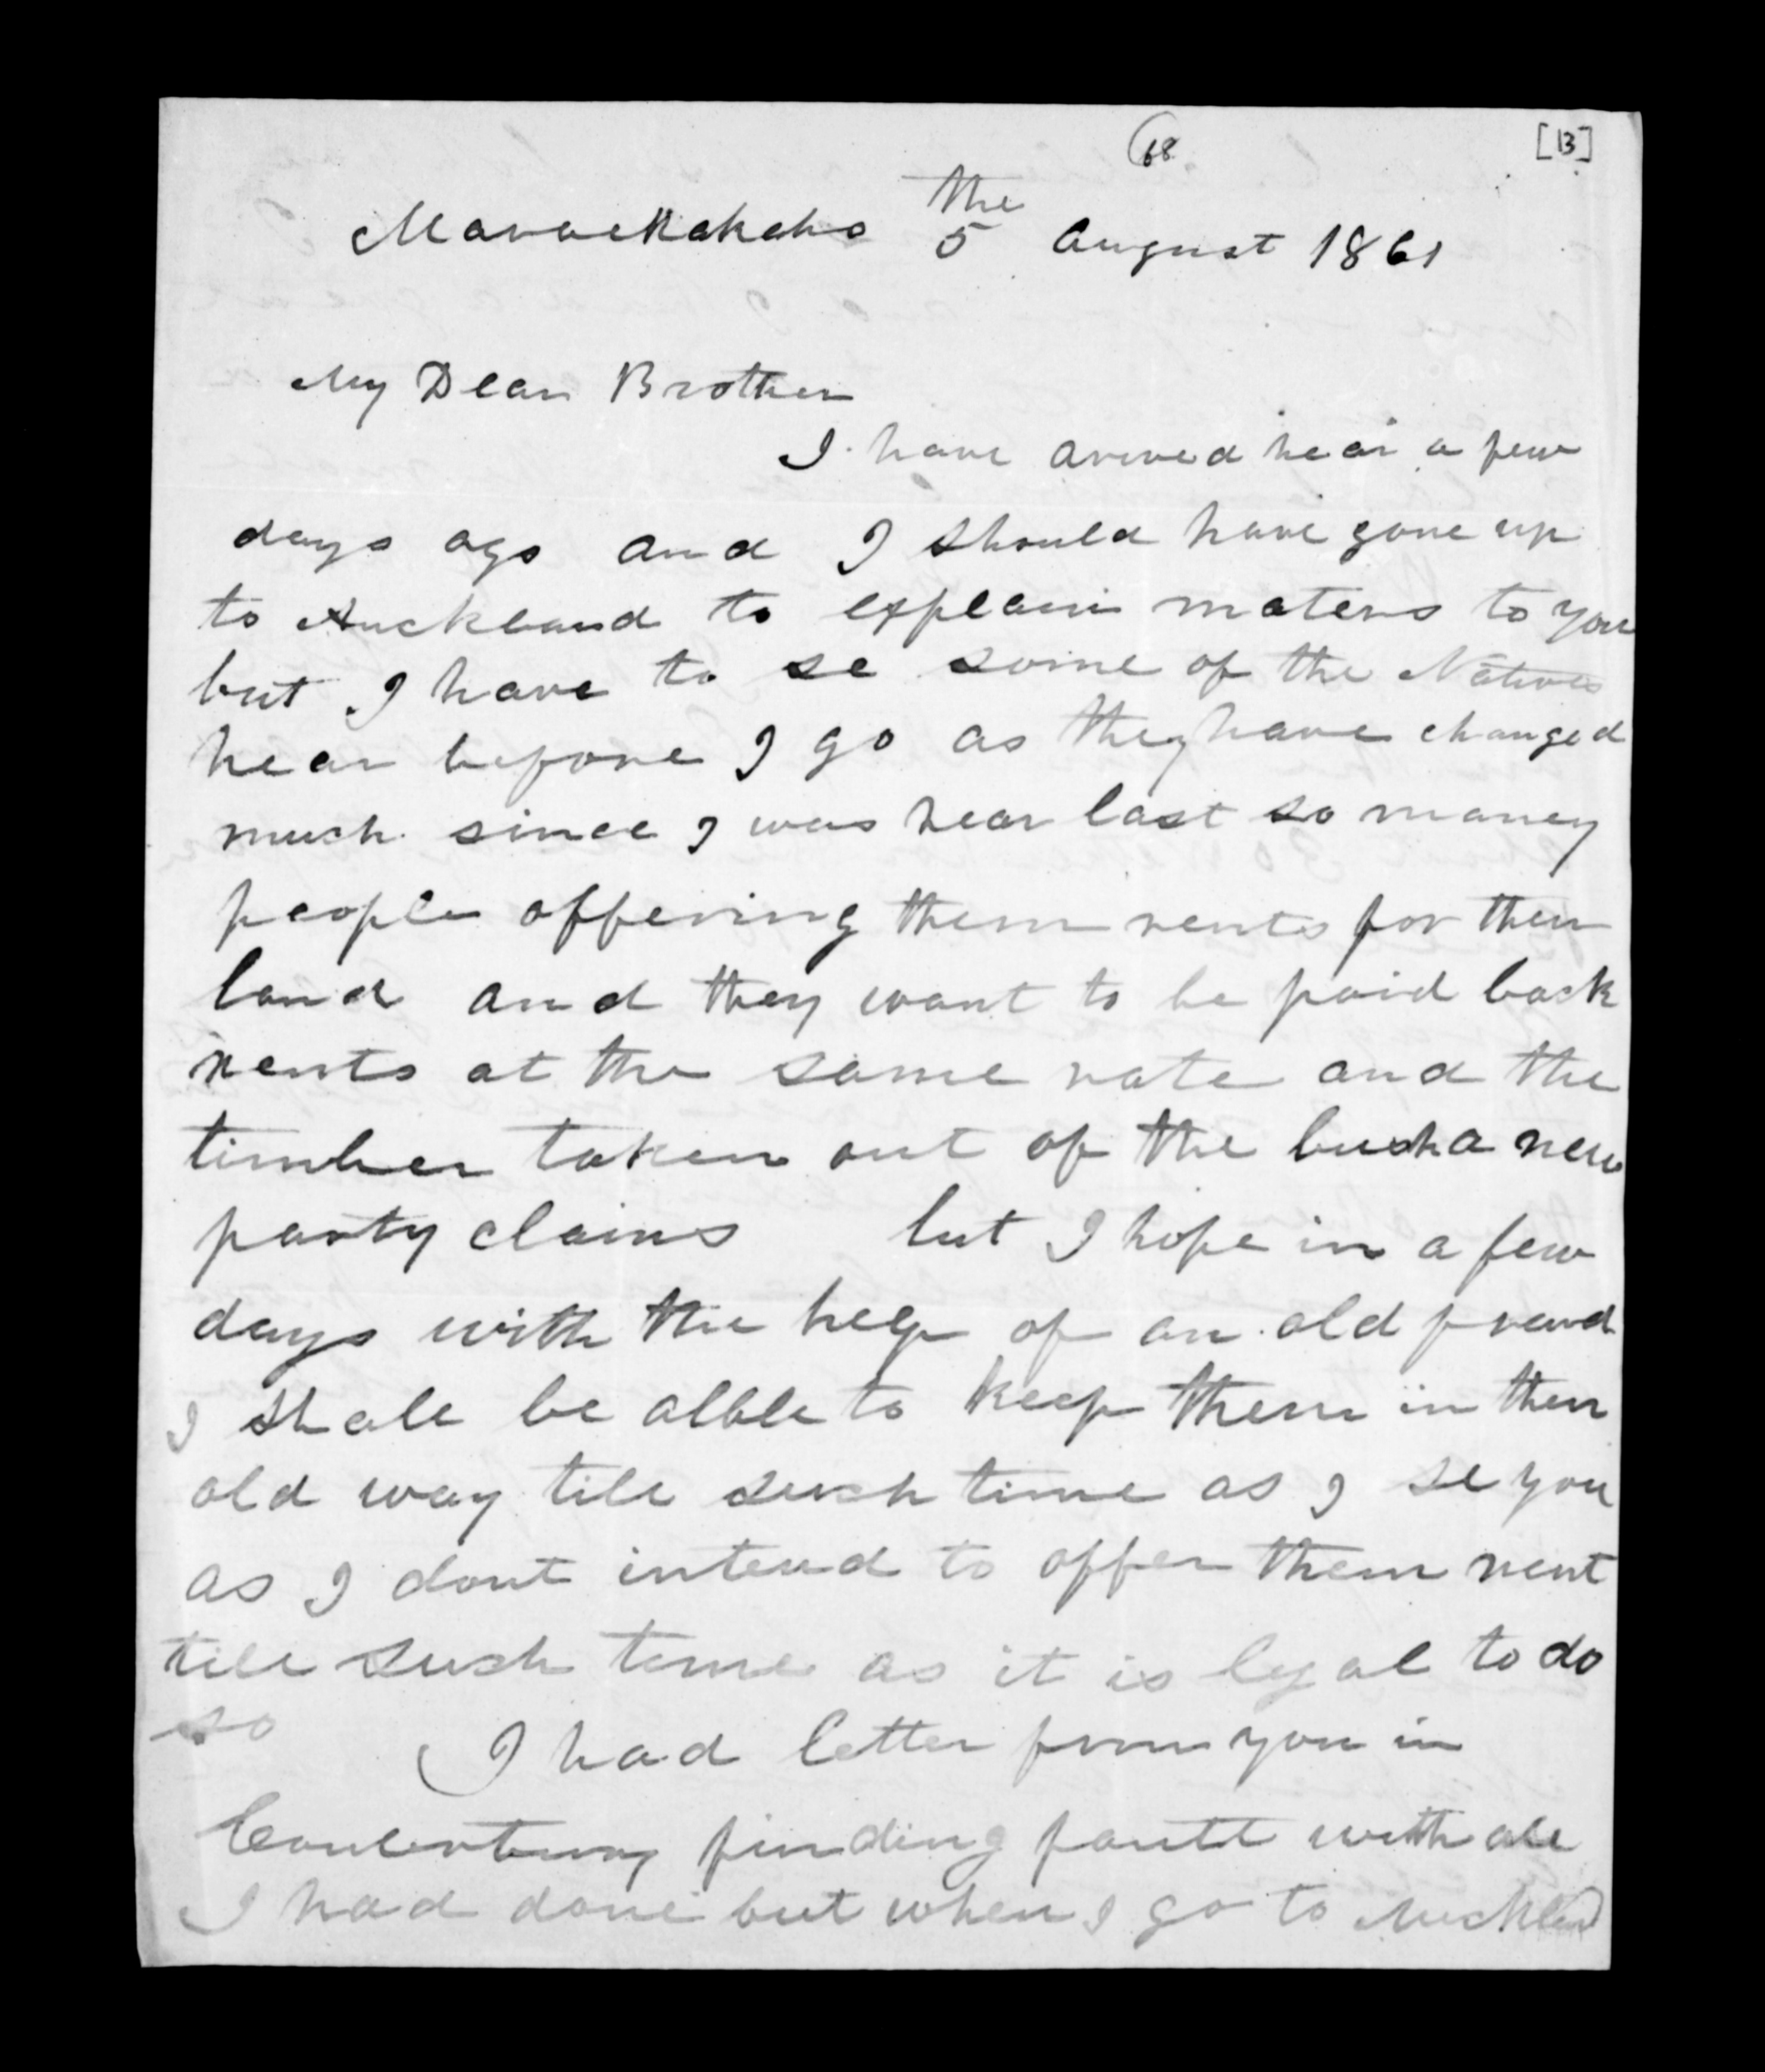 68
[13]
MaraeKakaho the 5 August 1861
My Dear Brother
I have arived hear a few
days ago and I should have gone up
to Auckland to explain maters to you
but I have to se some of the Natives
hear before I go as they have changed
much since I was hear last so maney
people offering them rents for ther
land and they want to be paid back
rents at the same rate and the
timber taken out of the bush a new
party claims but I hope in a few
days with the help of an old frend
I shall be allble to keep them in ther
old way till such time as I se you
as I dont intend to offer them rent
till such time as it is legal to do
so
I had letter from you in
Canterbury finding fault with all
I had done but when I go to Auckland